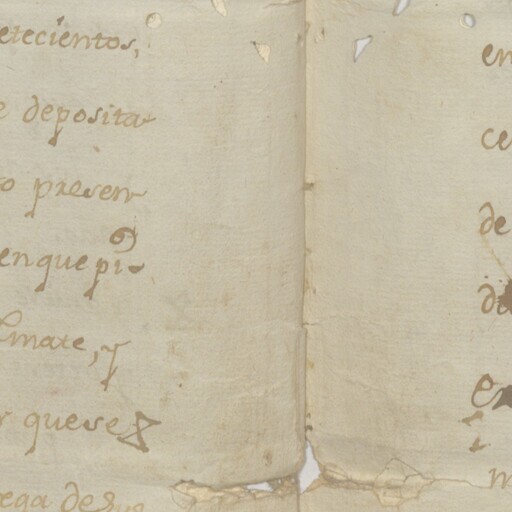 etecientos,
e deposita
o presen
en que pi
mate, y
r que se
ega de su
en
ce
de
m